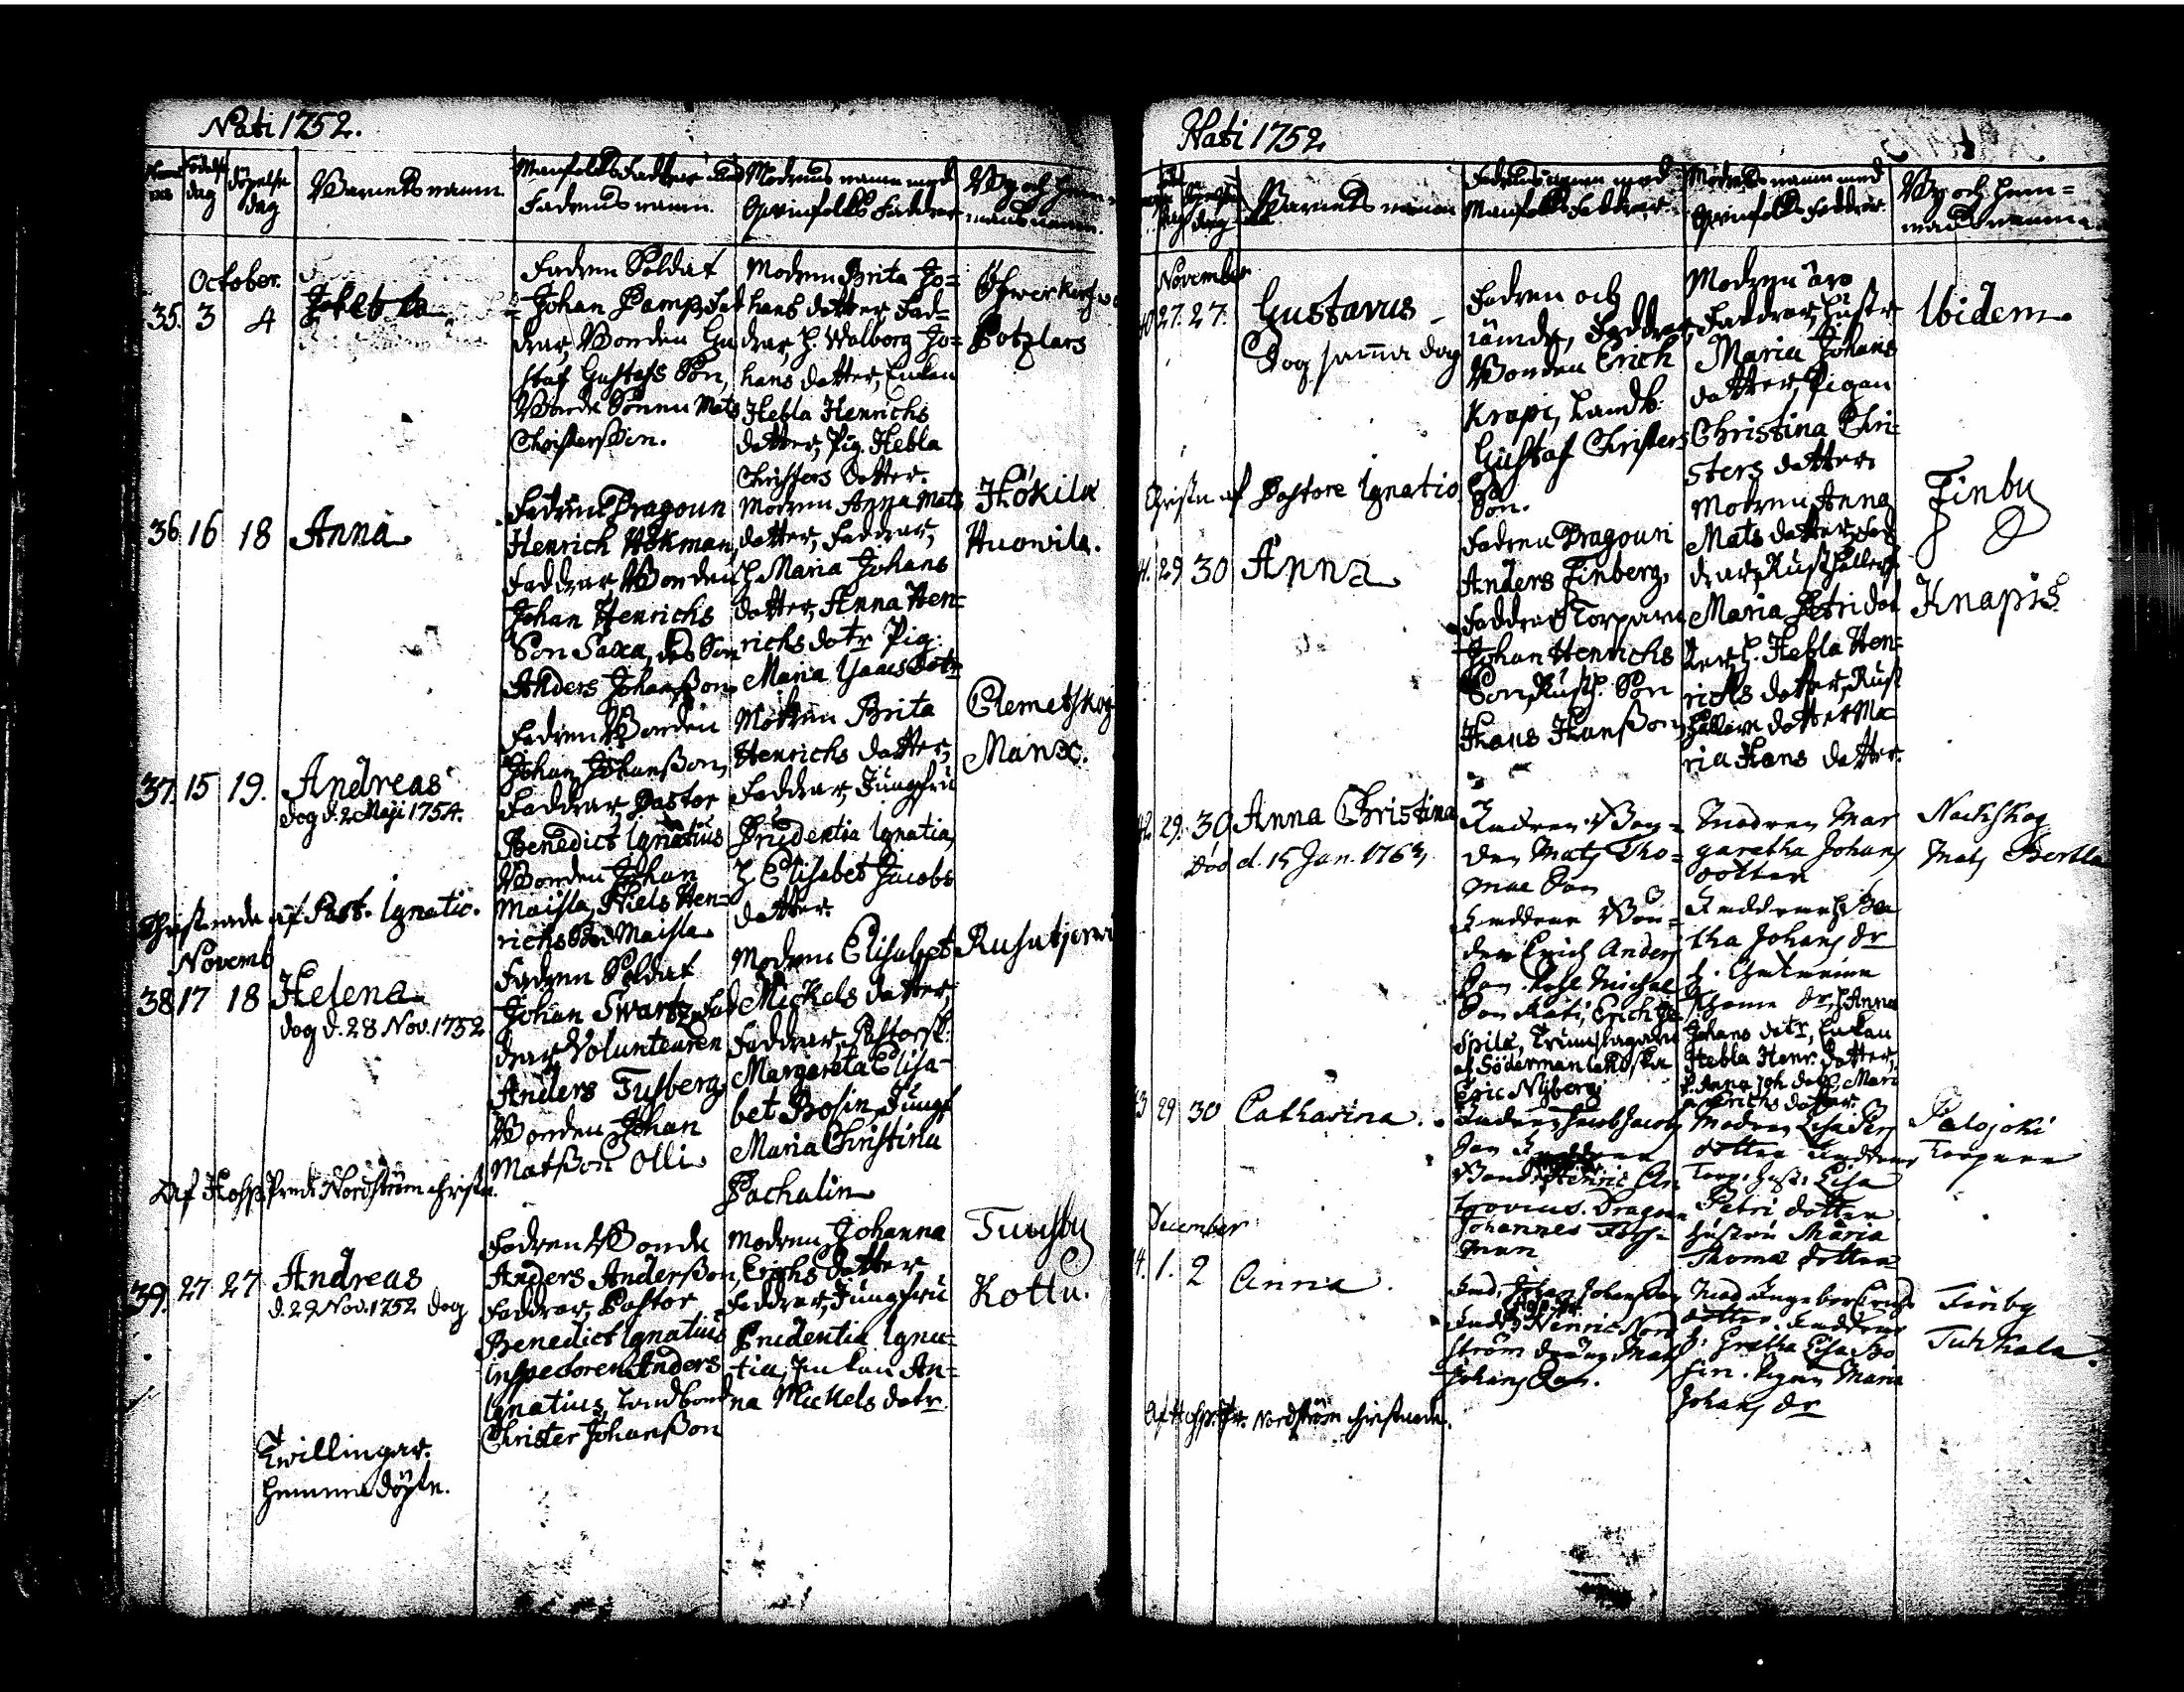 Nati 1752.
Födelse dag
döpelse dag
Barnets namn
Manfolks Faddrar med Fadrens namn.
Modrens namn med Qwinfolks Faddrar
By och Hemmans namn.
October.
35. 3 4
Fadren Soldat
Johan Damp, Fad
drar, Bonden Gu
staf Gustafs Son,
Bonde Sonen Mats
Christersson.
Modren Brita Jo=
hans dotter, Fad=
drar, h. Walborg Jo=
hans dotter, Enkan
Hebla Henrichs
dotter, Pig. Hebla
Christers dotter.
Potzlars
36. 16 18 Anna
Fadren Dragoun
Henrich Hökman,
Faddrar, Bonden
Johan Henrichs
Son Saxa, des Son
Anders Johansson
Modren Anna Mats
dotter, Faddrar,
h. Maria Johans
dotter, Anna Hen=
richs dotr Pig.
Maria Isaacs dotr
Hökila
Huowila.
37. 15 19. Andreas
dog d. 2 Maji 1754.
Fadren Bonden
Johan Johansson,
Faddrar, Pastor
Benedict Ignatius
Bonden Johan
Maisla, Niels Hen=
richs Son Maisla
Modren Brita
Henrichs dotter,
Faddrar, Jungfru
Prudentia Ignatia,
h. Elisabet Jacobs
dotter.
Clemetskog
Manx.
Christnade af Past. Ignatio.
Novemb
38. 17 18 Helena
dog d. 28 Nov. 1752
Fadren Soldat
Johan Swartz, Fad
drar, Volunteuren
Anders Tusberg,
Bonden Johan
Matsson Olli
Modren Elisabet
Mickels dotter,
Faddrar, Pastorsk.
Margareta Elisa-
bet Bosin, Jungf
Maria Christina
Pachalin
Rusutjerwi
Af Hosp. Pred. Nordström christn.
39. 27 27 Andreas
d. 29 Nov. 1752 dog
Fadren Bonde
Anders Andersson,
Faddrar, Pastor
Benedict Ignatius
Inspectoren Anders
Ignatius, Landbond
Christer Johansson
Modren Johanna
Erichs dotter
Faddrar, Jungfru
Prudentia Igna=
tia, Enkan An=
na Mickels dotr
Tuusby
Kottu.
Twillingar.
hemmadöpte.
Nati 1752
dag
Barnets namn
Fadrens namn med Manfolks Faddrar.
Modrens namn med Qwinfolks Faddrar.
By och Hem=
mans namn
November
40 27. 27. Gustavus
Dog samma dag
Fadren och
Faddrar,
Bonden Erich
Krapi, Landb.
Gustaf Christers
Son.
Modren äro
Faddrar, Hustr
Maria Johans
dotter, Pigan
Christina Chri=
sters dotter.
Ibidem.
Christn af Pastore Ignatio
41. 29 30 Anna
Fadren Dragoun
Anders Finberg,
Faddrar, Torparen
Johan Henrichs
Son, Rusth. Son
Hans Hansson
Modren Anna
Mats dotter, Fad
drar, Rusthållersk
Maria Petri dot
ter, h. Hebla Hen=
richs dotter, Rust
hållare dotter Ma=
ria Hans dotter.
Finby
Knapis
42. 29. 30 Anna Christina
död d. 15 Jan. 1763,
Fadren Bon=
den Mats Tho=
mae Son
Faddrar Bon=
den Erich Anders
Son
Son Kati, Erich
Spila, Trumslagaren
af Södermanlandska
Eric Nyberg
Modren Mar
garetha Johans
dotter
Faddrar h. Bea
tha Johans dr
h. Catharina
dr, h. Anna
Johans dotr, Enkan
Hebla Henr. dotter,
P. Anna Joh. dotr, Mari
Erichs dotter.
Nackskog
Mats Bertla
43 29 30 Catharina.
Fadren Jacob Jacobs
Son Faddrar
Bond. Henric An
Dragon
Johannes
man
Modren Lisa
dotter Faddrar
Torp. hust. Lisa
Petri dotter
hustru Maria
Thomæ dotter
Palojoki
Torpare
December
44. 1. 2 Anna.
Fad. Johan Johans Son
Fadd. Henric Nord
ström dräng Mats
Johans Son.
Mod. Ingebor Erichs
dotter. Faddrar
h. Gretha Lisa Bo
sin. Pigan Maria
Johans dr
Finby
Tuhkala.
Af Hosp. Pr. Nordström christnade.